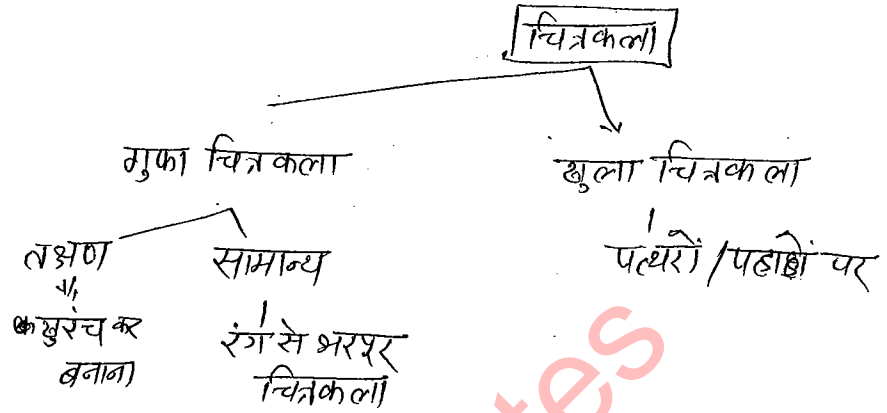 चित्रकला
गुफा चित्रकला
खुला चित्रकला
तक्षण
सामान्य
पत्थरों / पहाड़ों पर
खुरंच कर
बनाना
रंग से भरपूर
चित्रकला
tes